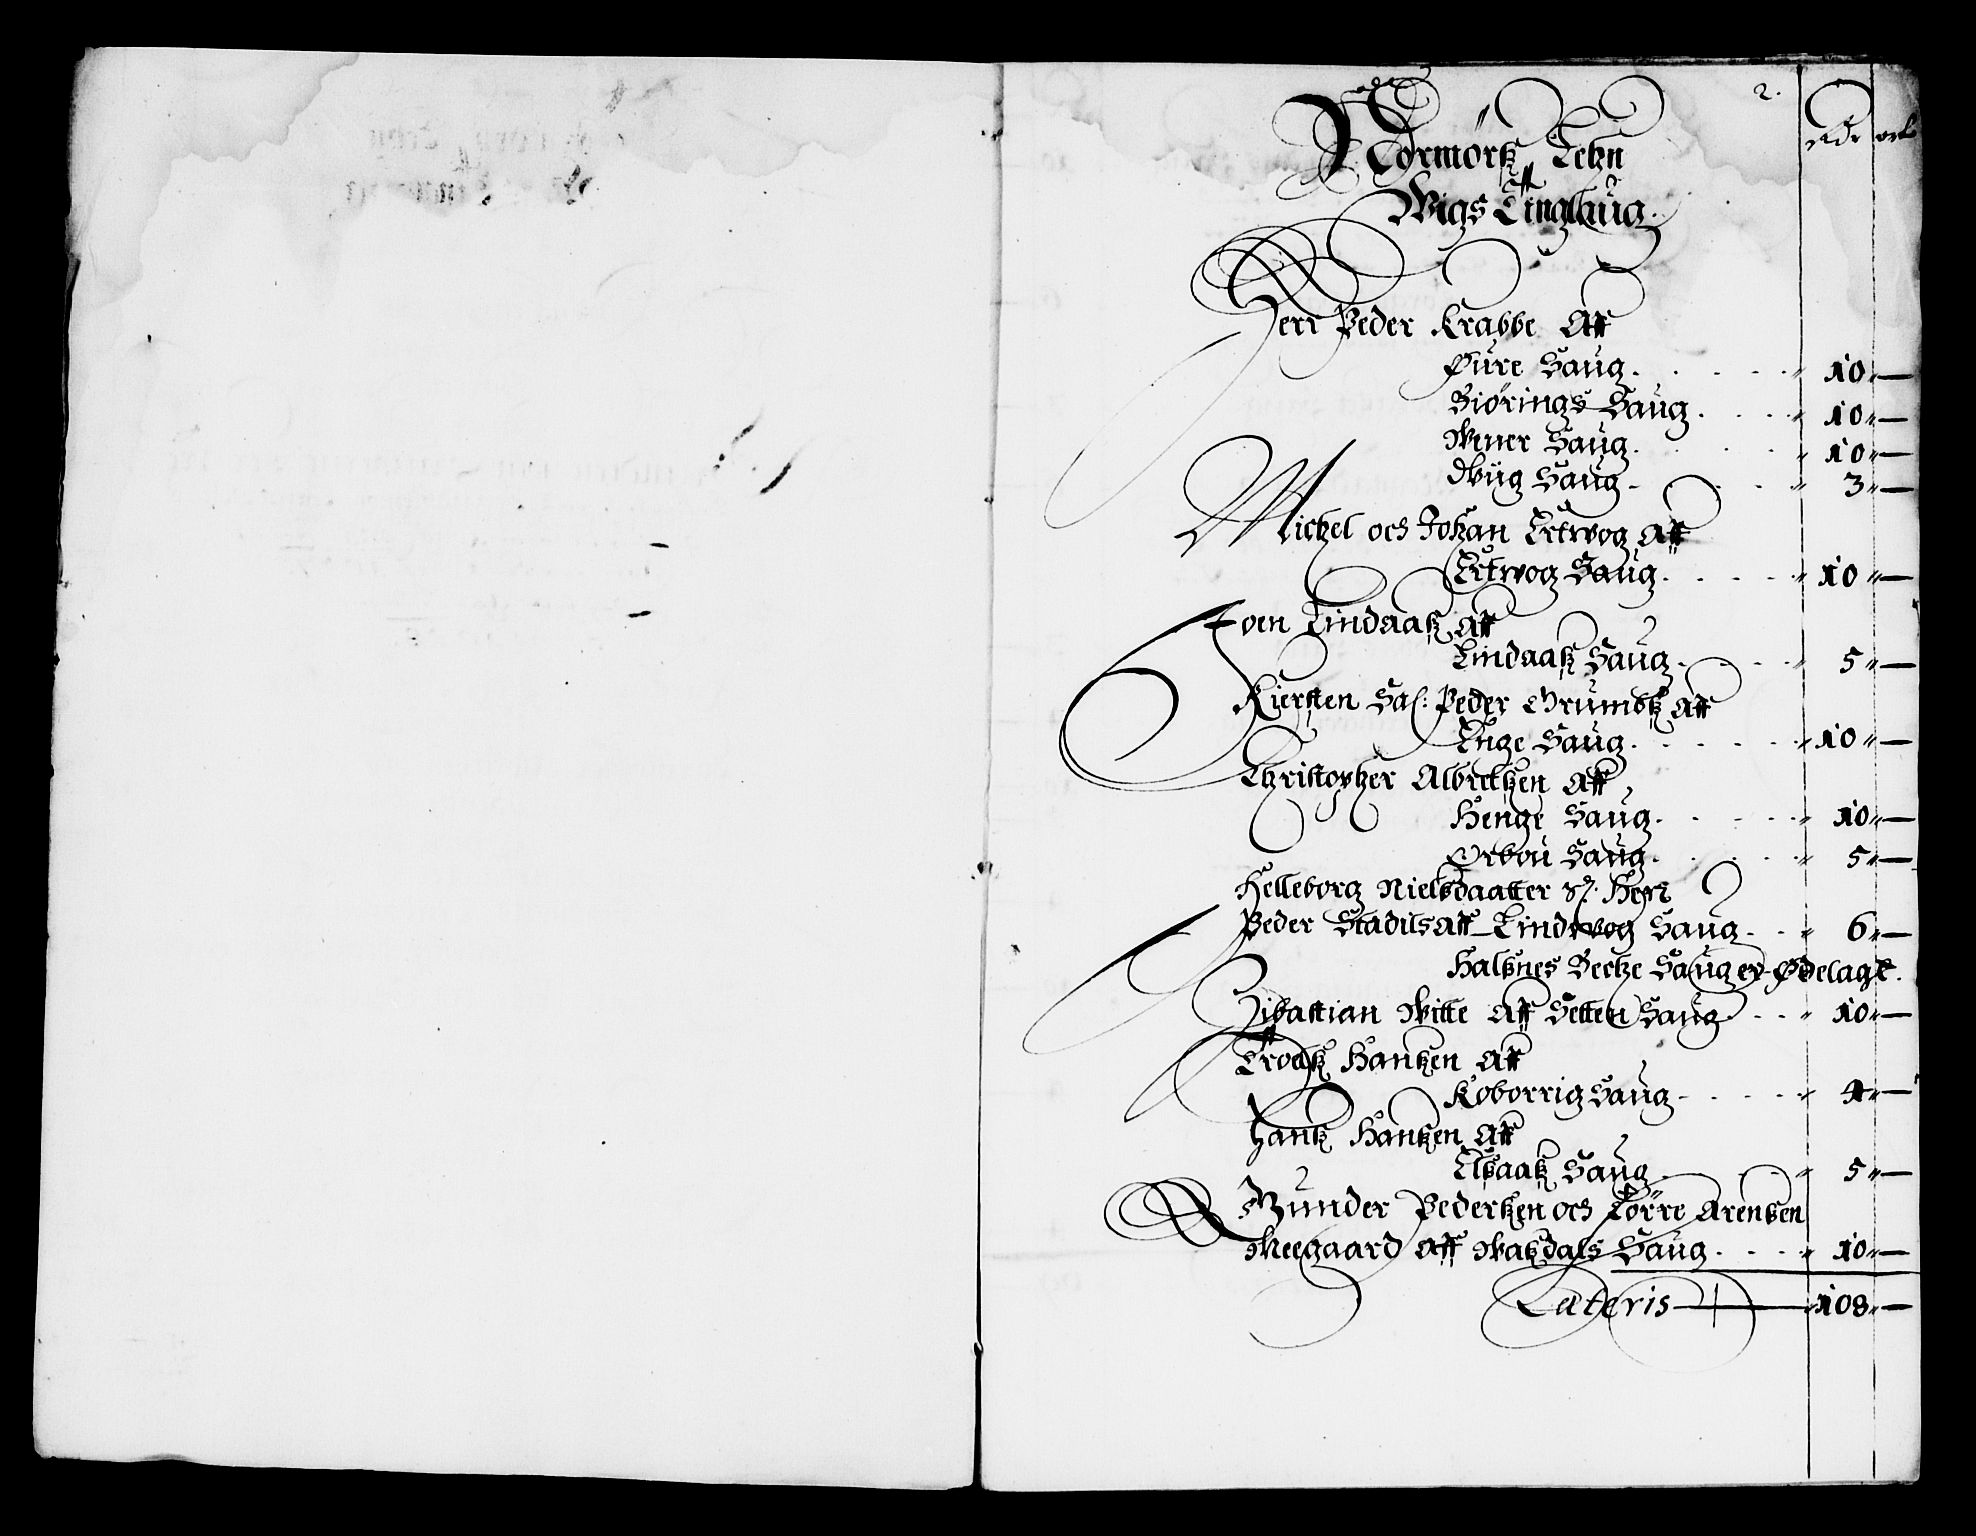 2.
Rdr ort
Normörtz Lehn
Wigs Tinglaug.
Herr Peder Krabbe Aff
Øure Saug. 10 –
Biørings Saug. 10 –
Wener Saug. 10 –
Wüg Saug. 3 –
Michel och Johan Ertwog Aff
Ertwog Saug. 10 –
Joen Lindaaß Aff
Lindaaß Saug. 5 –
Kiersten Sal: Peder Grumbß Aff
Enge Saug. 10 –
Christopher Albretzen Aff
Henge Saug. 10 –
Ørbou Saug. 5 –
Helleborg Nielsdaatter Herr
Peder Stadils Aff Lindwog Saug. 6 –
Halßnes Becke Saug er Ødelagt.
Zibastian Witte Aff Setten Saug. 10 –
Troelß Hanßen Aff
Koborrig Saug 4 –
Hanß Hanßen Aff
Elßaaß Saug. 5 –
Gunder Pederßen och Törre Arenßen
Meegaard Aff Watzdals Saug. 10 –
Lateris 108 –